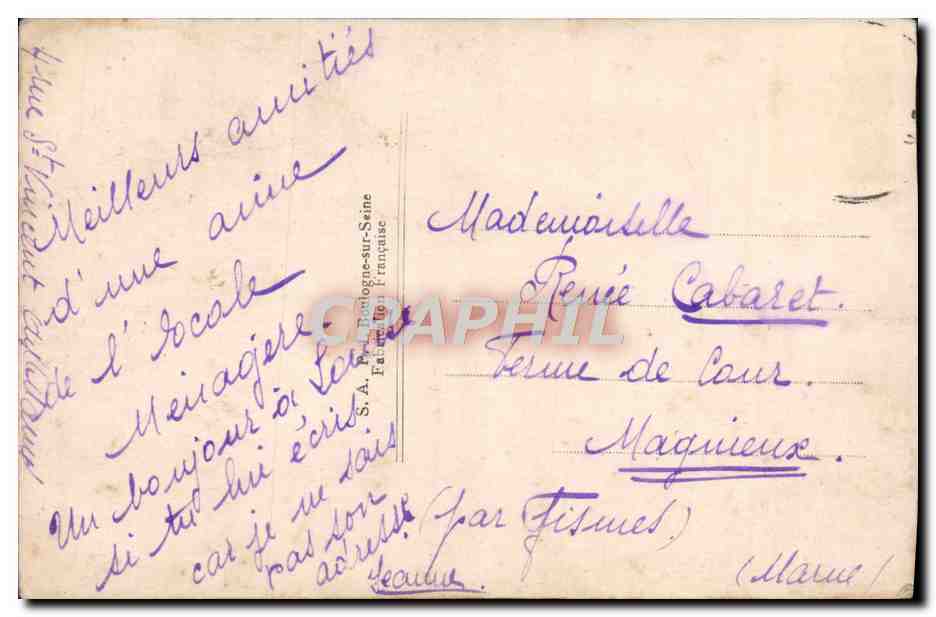 4 rue St Vincent
Meilleurs amitiés
d'une amie
de l'école
Ménagère.
Un bonjour à
si tu lui écris
car je ne sais
pas son
adresse.
Jeanne.
S. A. Boulogne-sur-Seine
Fabrication Française
CPAPHIL
Mademoiselle
Renée Cabaret.
Ferme de Cour.
Magneux.
(par Fismes)
(Marne)